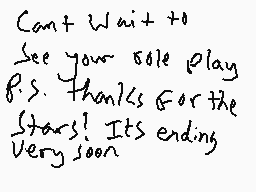 Cant Wait to
See your role play
P.S. Thanks for the
Stars! Its ending
very soon